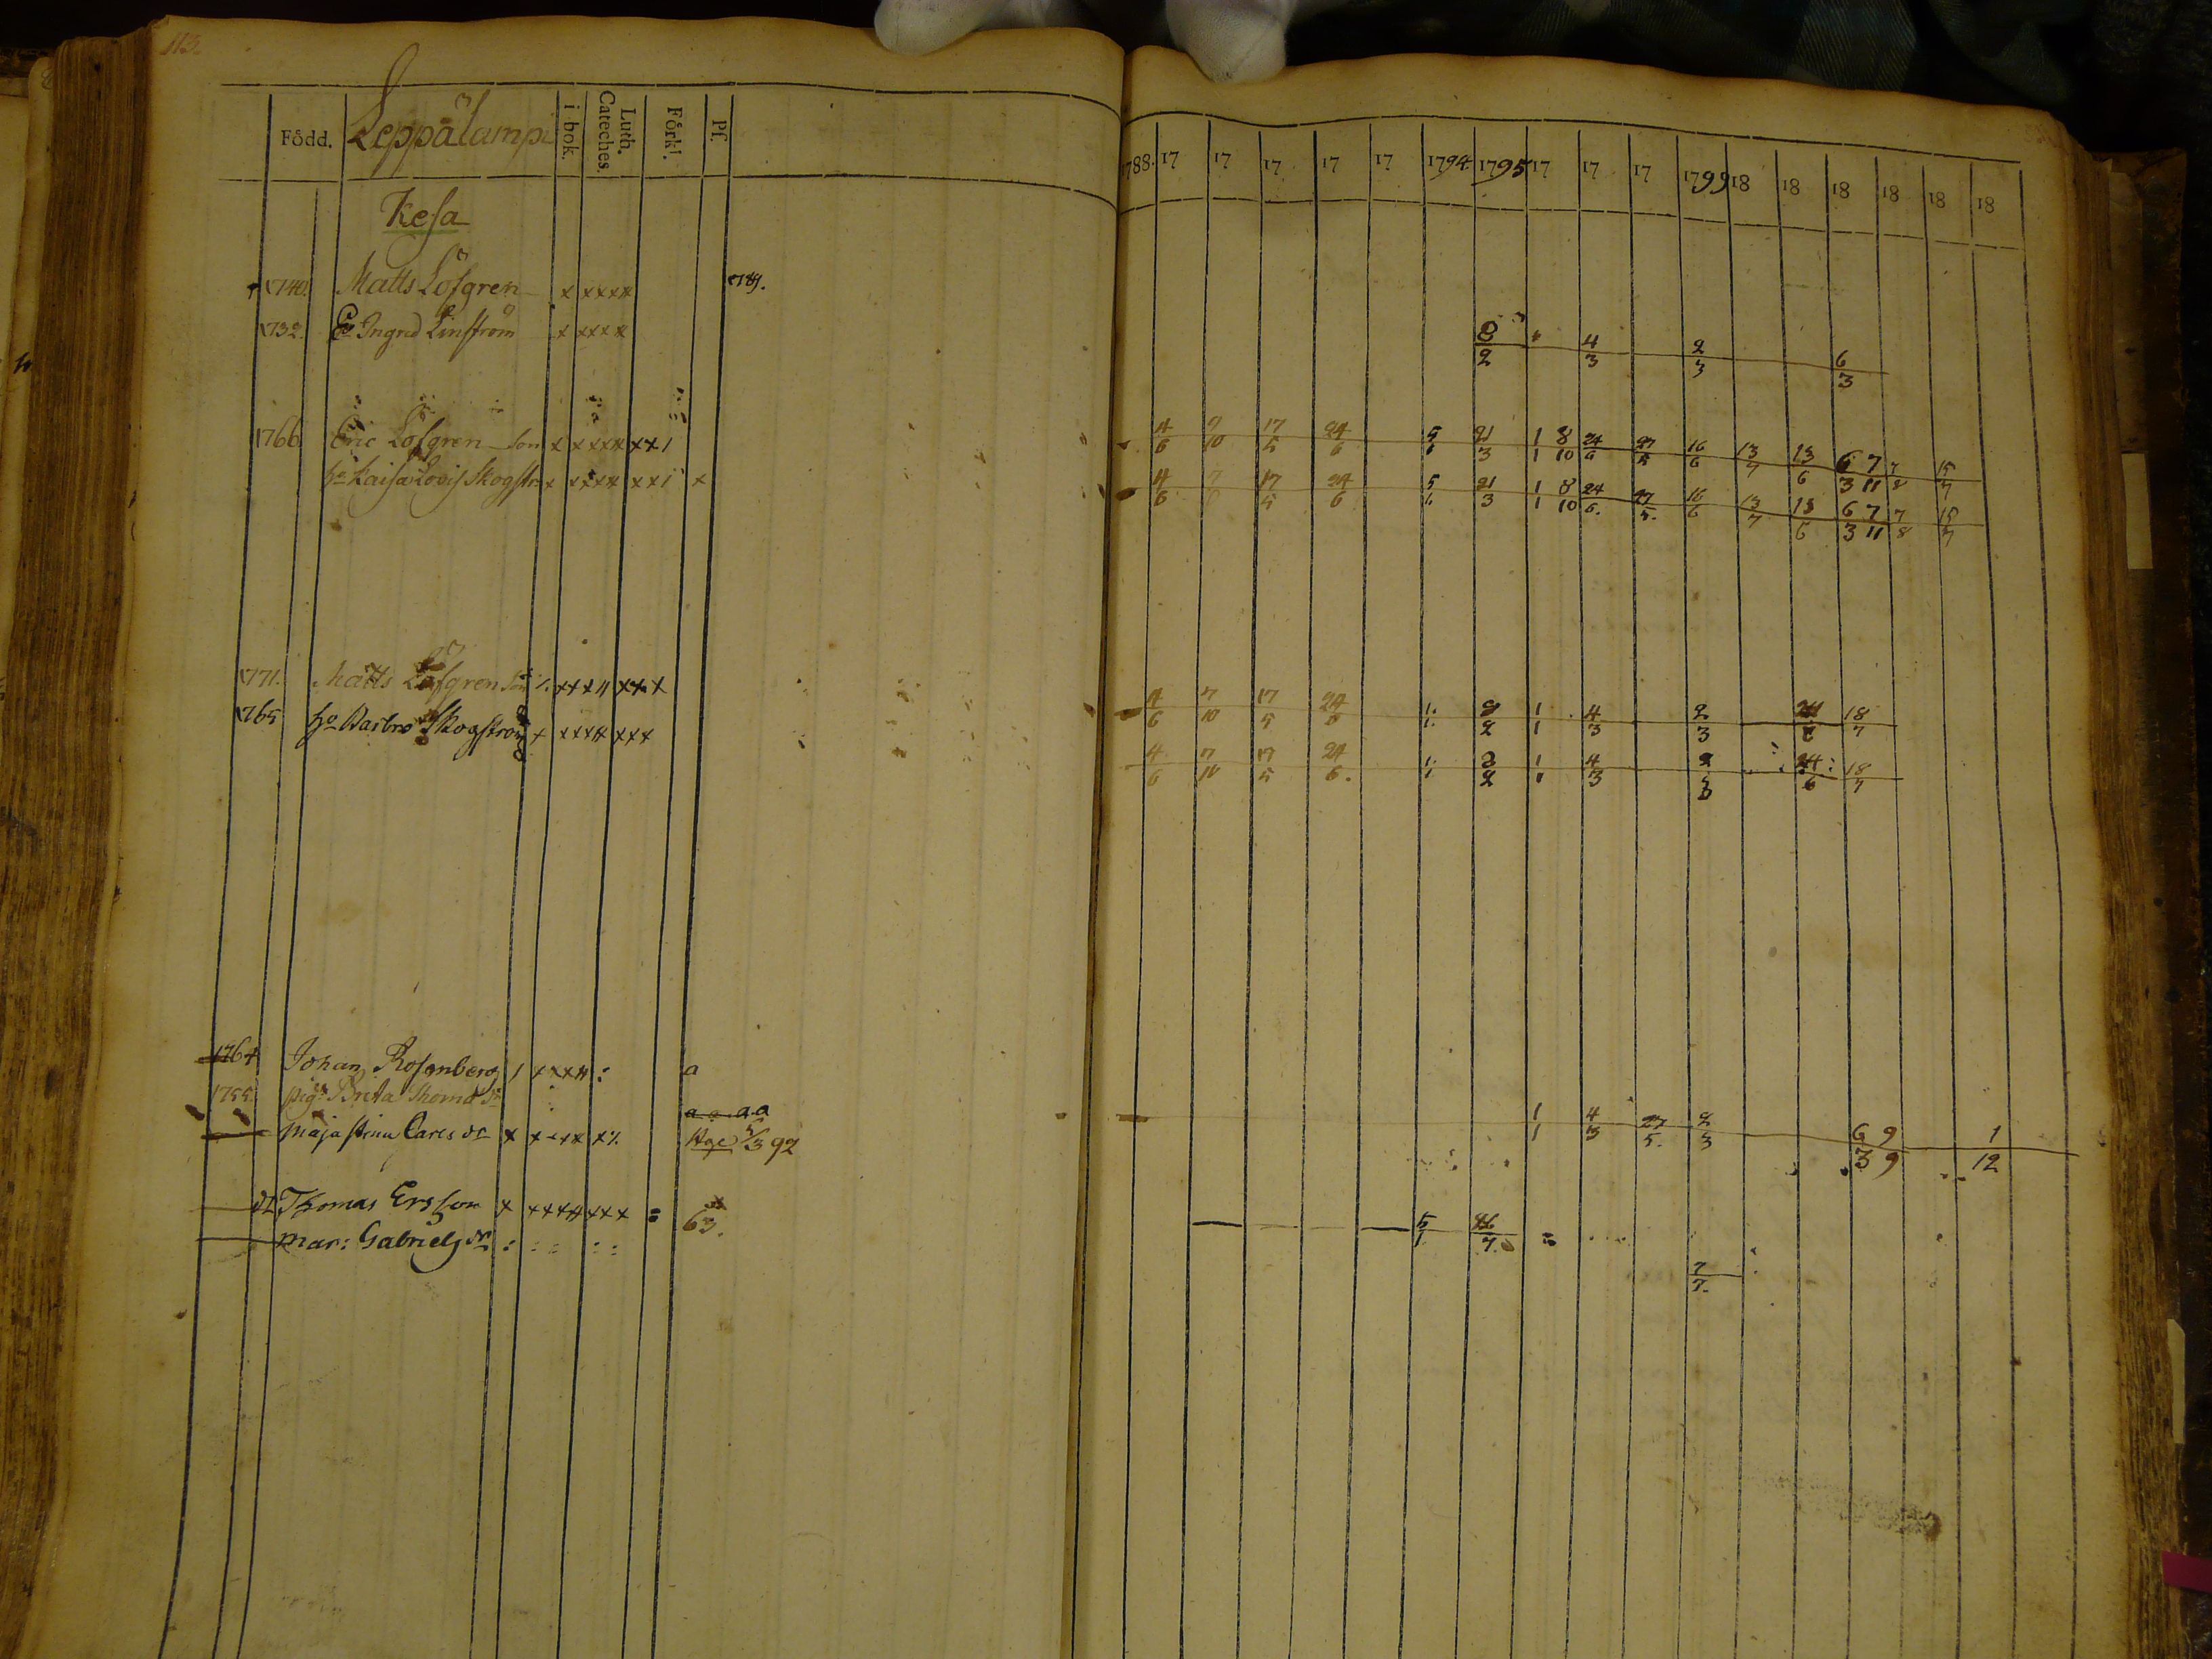 113.
Född. Leppälampi i bok. Luth. Cateches. Förkl. Pf. 1788. 17 17 17 17 17 1794 1795 17 17 17 1799 18 18 18 18 18 18
Kesa
1740. Matts Löfgren x xxxx 1789.
1732. Ingrid Linström x xxxx 8/2 4/3 2/3 6/3
1766 Eric Löfgren son x xxxx xx1 4/6 7/10 17/5 24/6 5/1 21/3 1/1 8/10 24/6 27/5 16/6 13/7 13/6 6/3 7/11 7/8 15/7
hu Kaisa Lovis Skogstr x xxxx xx1 x 4/6 17/5 24/6 5/1 21/3 1/1 8/10 24/6. 27/5. 16/6 13/7 13/6 6/3 7/11 7/8 15/7
1771. Matts Löfgren son xxx xxx 4/6 7/10 17/5 24/6 1/1 8/2 1/1 4/3 2/3 24/6 18/7
1765 hu Barbro Skogström x xxxx xxx 4/6 7/10 17/5 24/6. 1/1 8/2 1/1 4/3 2/3 24/6 18/7
1764 Johan Rosenberg / xxxx : a
1755. pig. Brita Thoma dr
a a a a
maja stina Carls dr x xxxx x% 5/3 92 1/1 4/3 27/5. 2/3 6/3 9/9 1/12
Thomas Ersson x xxxx xxx = 63. 5/1 16/7.
mar: Gabriels dr : : : : : 7/7.